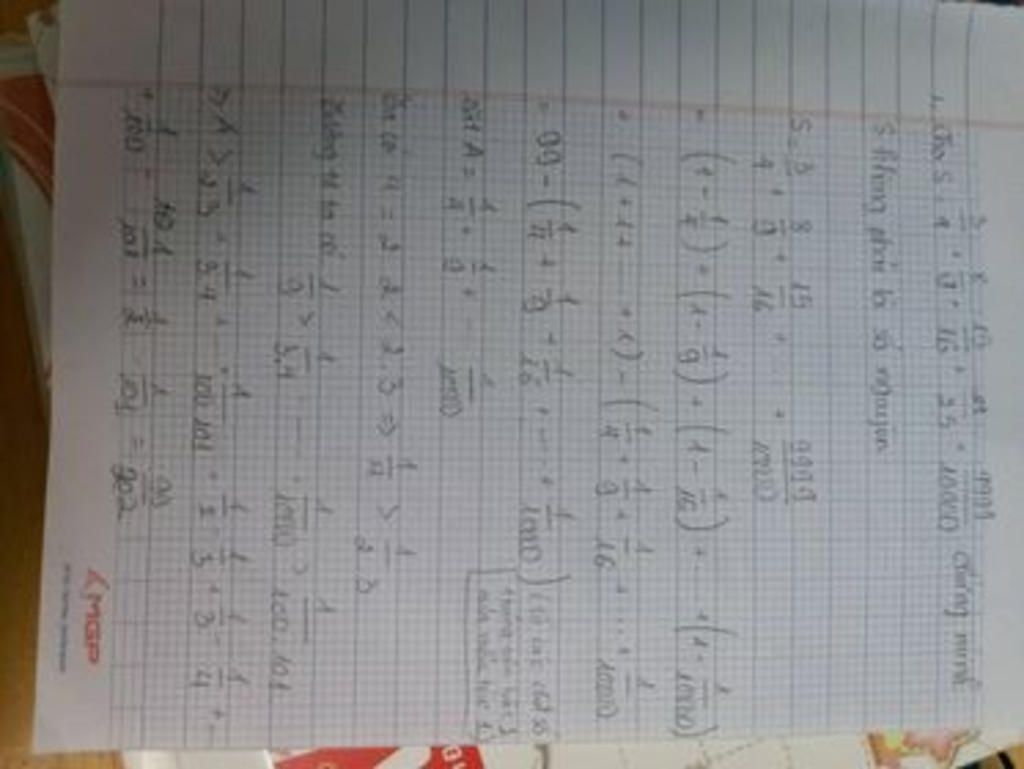 Cho S = 3/4 + 8/9 + 15/16 + 24/25 + 9999/10000 chứng minh
S không phải là số nguyên
S = 3/4 + 8/9 + 15/16 + ... + 9999/10000
= (1 - 1/4) + (1 - 1/9) + (1 - 1/16) + ... + (1 - 1/10000)
= (1 + 1 + ... + 1) - (1/4 + 1/9 + 1/16 + ... + 1/10000)
= 99 - (1/4 + 1/9 + 1/16 + ... + 1/10000)
A = 1/4 + 1/9 + ... 1/10000
Ta có 4 = 2.2 < 2.3 => 1/4 > 1/2.3
tự ta có 1/9 > 1/3.4 ... 1/10000 > 1/100.101
=> A > 1/2.3 + 1/3.4 + ... + 1/100.101 = 1/2 - 1/3 + 1/3 - 1/4 + ...
+ 1/100 - 1/101 = 1/2 - 1/101 = 99/202